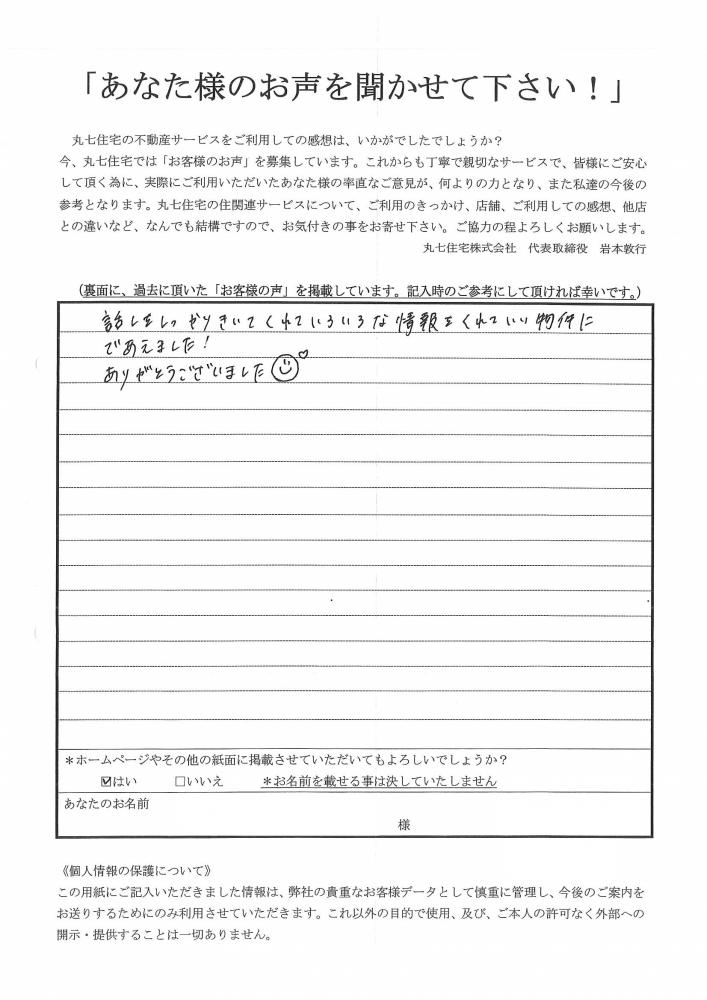 「あなた様のお声を聞かせて下さい！」
丸七住宅の不動産サービスをご利用しての感想は、いかがでしたでしょうか？
今、丸七住宅では「お客様のお声」を募集しています。これからも丁寧で親切なサービスで、皆様にご安心
して頂く為に、実際にご利用いただいたあなた様の率直なご意見が、何よりの力となり、また私達の今後の
参考となります。丸七住宅の住関連サービスについて、ご利用のきっかけ、店舗、ご利用しての感想、他店
との違いなど、なんでも結構ですので、お気付きの事をお寄せ下さい。ご協力の程よろしくお願いします。
丸七住宅株式会社　代表取締役　岩本敦行
（裏面に、過去に頂いた「お客様の声」を掲載しています。記入時のご参考にして頂ければ幸いです。）
話しをしっかりきいてくれていろいろな情報をくれていい物件に
であえました！
ありがとうございました
＊ホームページやその他の紙面に掲載させていただいてもよろしいでしょうか？
☑はい　□いいえ　＊お名前を載せる事は決していたしません
あなたのお名前
様
《個人情報の保護について》
この用紙にご記入いただきました情報は、弊社の貴重なお客様データとして慎重に管理し、今後のご案内を
お送りするためにのみ利用させていただきます。これ以外の目的で使用、及び、ご本人の許可なく外部への
開示・提供することは一切ありません。